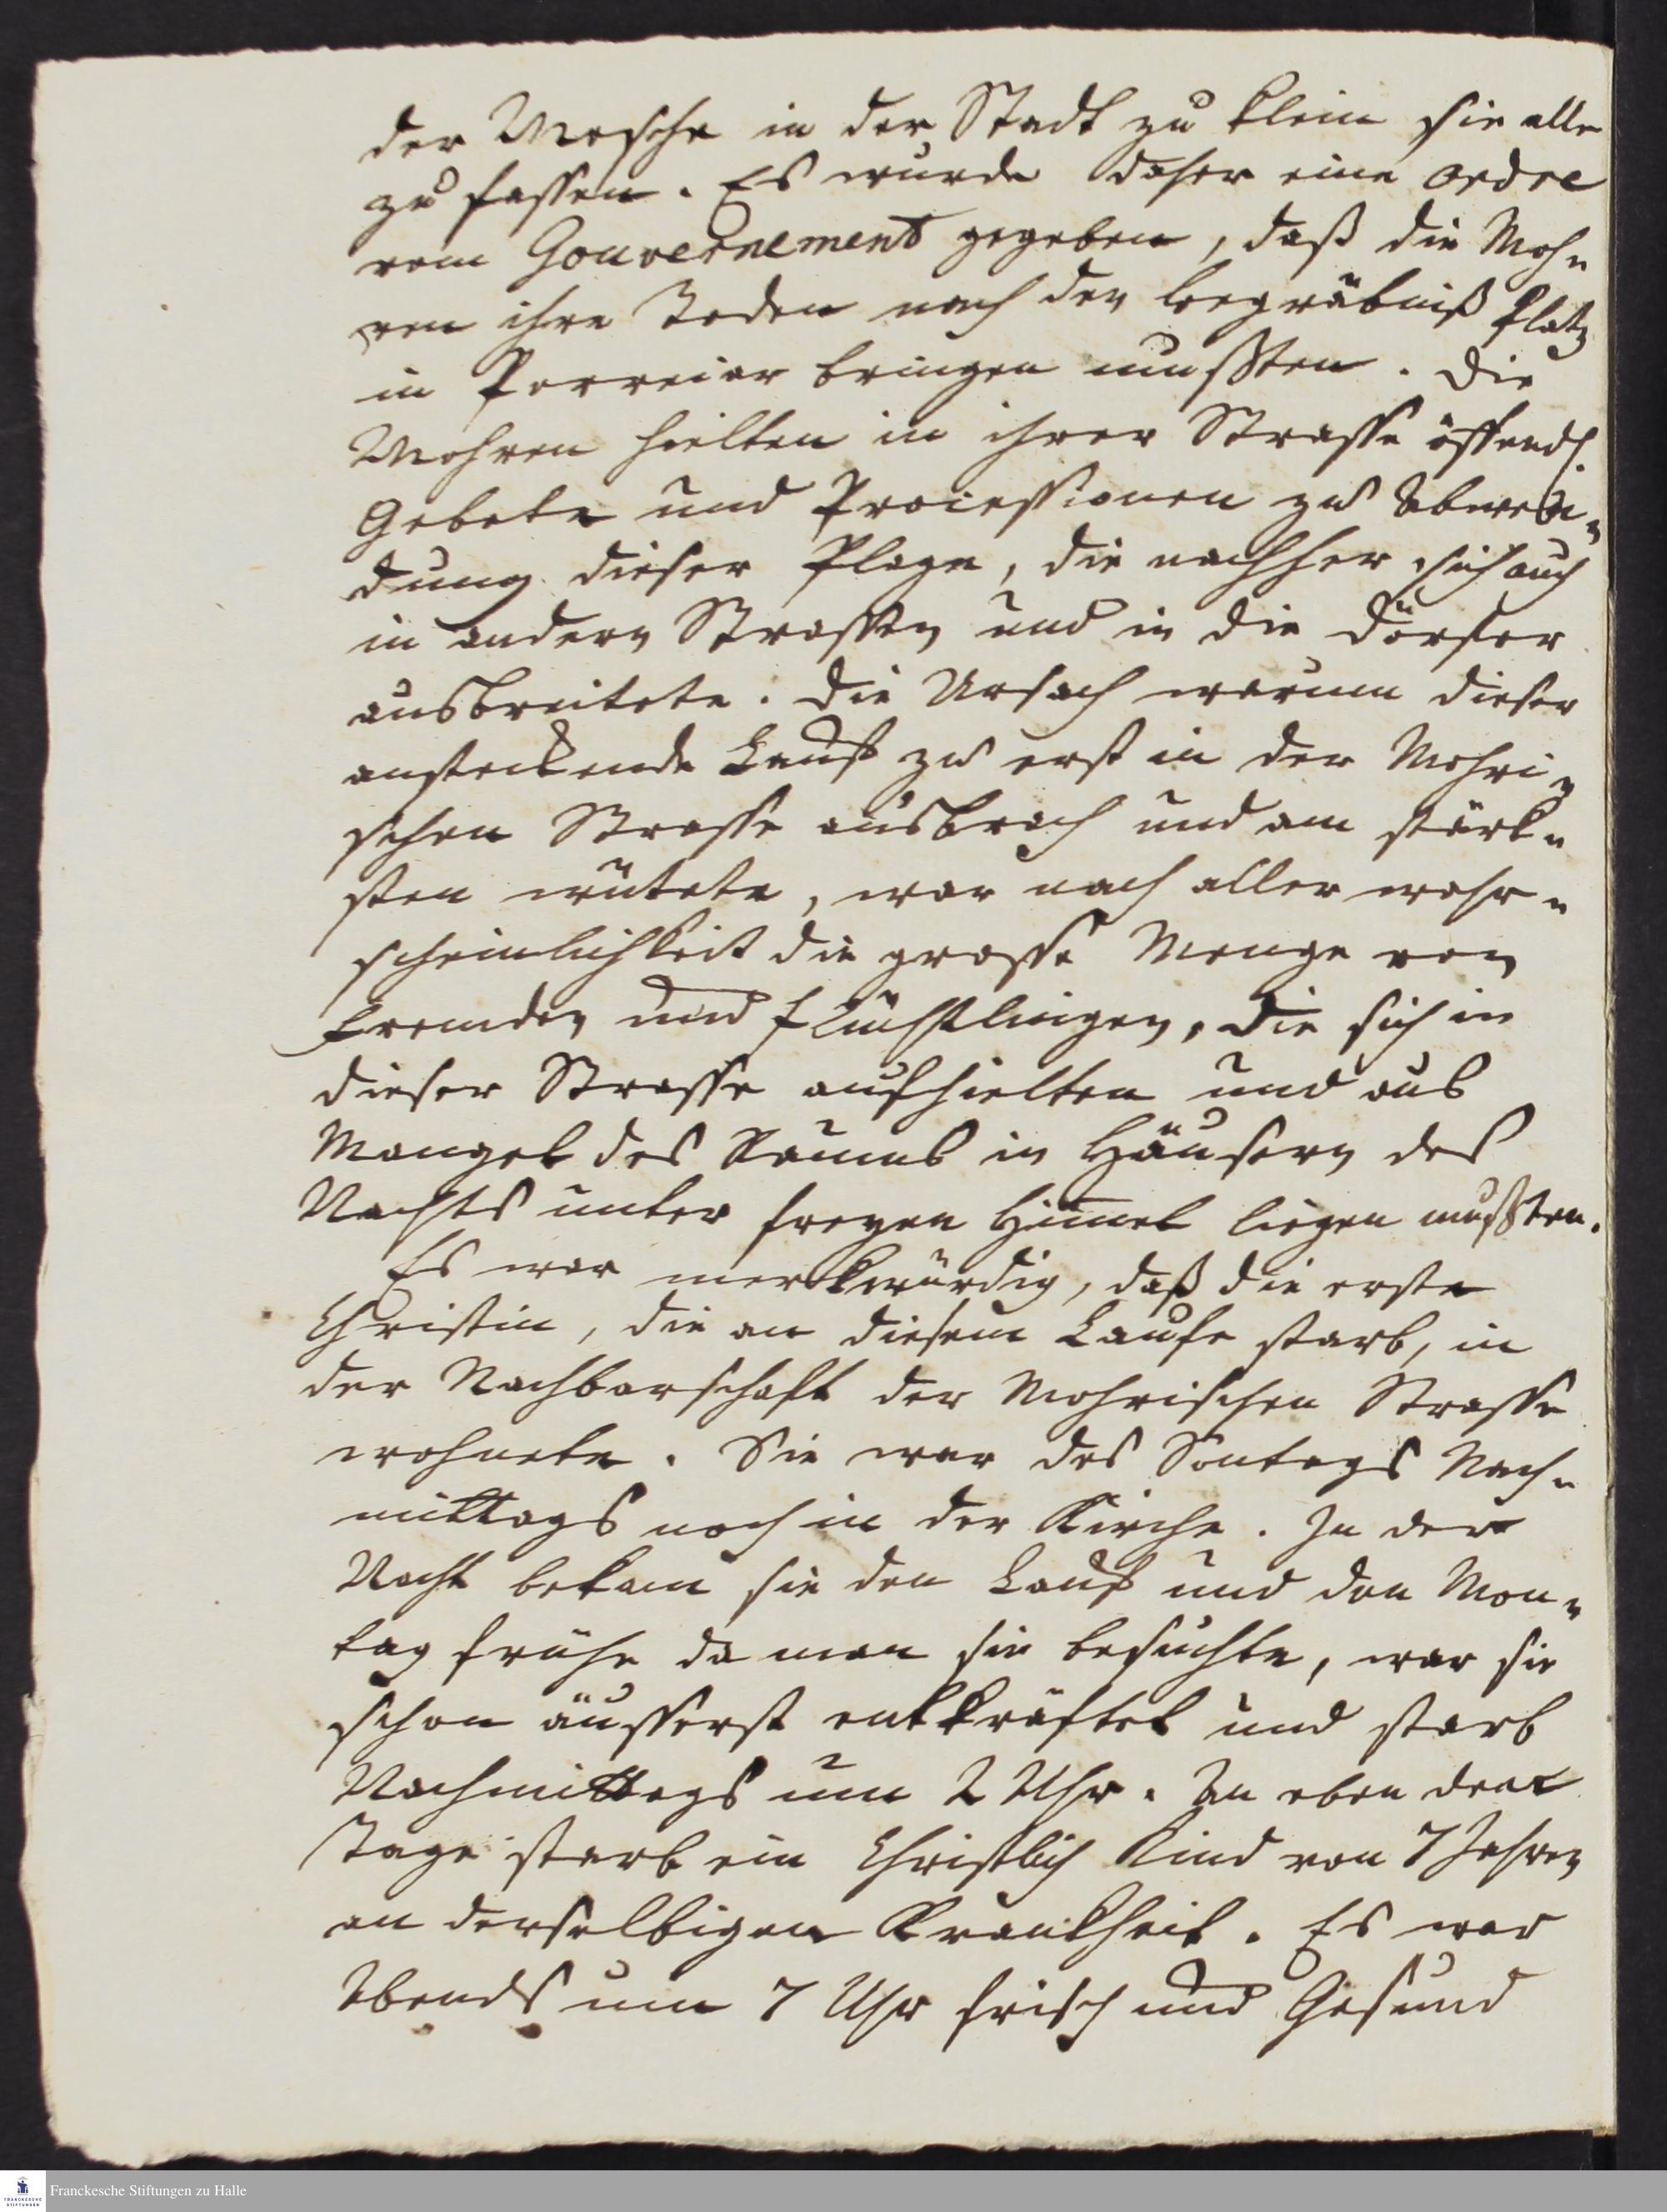 der Mosche in der Stadt zu klein sie alle
zu fassen. Es wurde daher eine ordre
vom Gouvernement gegeben, daß die Moh„
ren ihre Toden nach den begräbniß Platz
in Porreiar bringen mußten. Die
Mohren hielten in ihrer Strasse öffendl.
Gebete und Procissionen zu Abwen„
dung dieser Plage, die nachher sich auch
in andern Strassen und in die Dörfer
ausbreitete. Die Ursach warum dieser
anstekende Lauf zu erst in der Mohri„
schen Strasse ausbrach und am stärk„
sten wütete, war nach aller wahr„
scheinlichkeit die grosse Menge von
fremden und flüchtlingen, die sich in
dieser Strasse aufhielten und aus
Mangel des Raums in Häusern des
Nachts unter freyen Himel liegen mußten.
Es war merkwürdig, daß die erste
Christin, die an diesem Laufe starb, in
der Nachbarschaft der Mohrischen Strasse
wohnete. Sie war des Sontags Nach„
mittags noch in der Kirche. In der
Nacht bekam sie den Lauf und den Mon„
tag frühe da man sie besuchte, war sie
schon äusserst entkräftet und starb
Nachmittags um 2 Uhr. An eben dem
Tage starb ein Christlich Kind von 7 Jahren
an derselbigen Krankheit. Es war
Abends um 7 Uhr frisch und Gesund
FRANCKESCHE STIFTUNGEN
Franckesche Stiftungen zu Halle